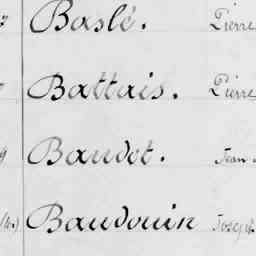 Baslé. Pierre
Battais. Pierre
Baudot. Jean
Baudouin Joseph